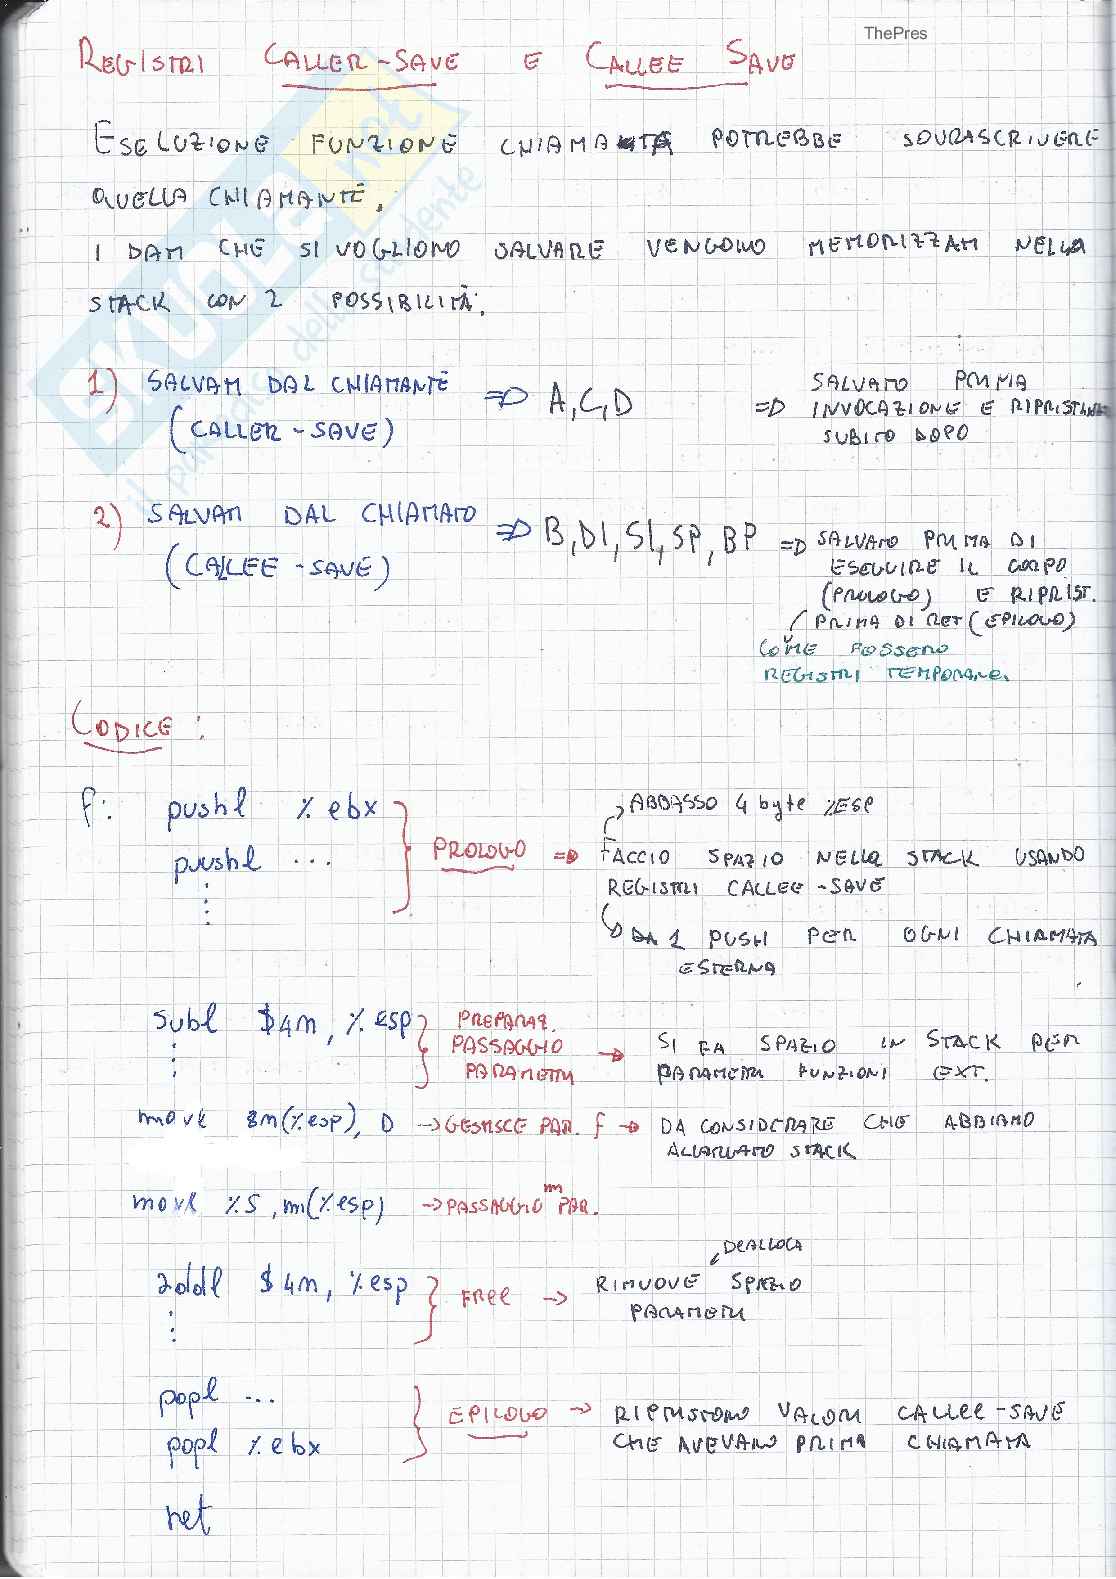 ThePres
REGISTRI CALLER-SAVE E CALLEE SAVE
ESECUZIONE FUNZIONE CHIAMANTA POTREBBE SOVRASCRIVERE
QUELLA CHIAMANTE.
I DATI CHE SI VOGLIONO SALVARE VENGONO MEMORIZZATI NELLA
STACK CON 2 POSSIBILITÀ:
1) SALVATI DAL CHIAMANTE => A, C, D => SALVATO PRIMA
(CALLER-SAVE) INVOCAZIONE E RIPRISTINATO
SUBITO DOPO
2) SALVATI DAL CHIAMATO => B, DI, SI, SP, BP => SALVATO PRIMA DI
(CALLEE-SAVE) ESEGUIRE IL CORPO
(PROLOGO) E RIPRIST.
PRIMA DI RET (EPILOGO)
COME FOSSERO
REGISTRI TEMPORANE.
CODICE:
f: pushl %ebx
pushl ...
PROLOGO => FACCIO SPAZIO NELLA STACK USANDO
REGISTRI CALLEE-SAVE
ABBASSO 4 byte %ESP
DA 1 PUSH PER OGNI CHIAMATA
ESTERNA
subl $4n, %esp PREPARAZ.
PASSAGGIO -> SI FA SPAZIO IN STACK PER
PARAMETRI PARAMETRI FUNZIONI EXT.
movl 8m(%esp), D -> GESTISCE PAR. f -> DA CONSIDERARE CHE ABBIAMO
ALLARGATO STACK
movl %S, m(%esp) -> PASSAGGIO PAR.
DEALLOCA
addl $4n, %esp FREE -> RIMUOVE SPAZIO
PARAMETRI
popl ...
EPILOGO -> RIPRISTONO VALORI CALLEE-SAVE
popl %ebx CHE AVEVANO PRIMA CHIAMATA
ret
SKUOLA.net
il paradiso dello studente